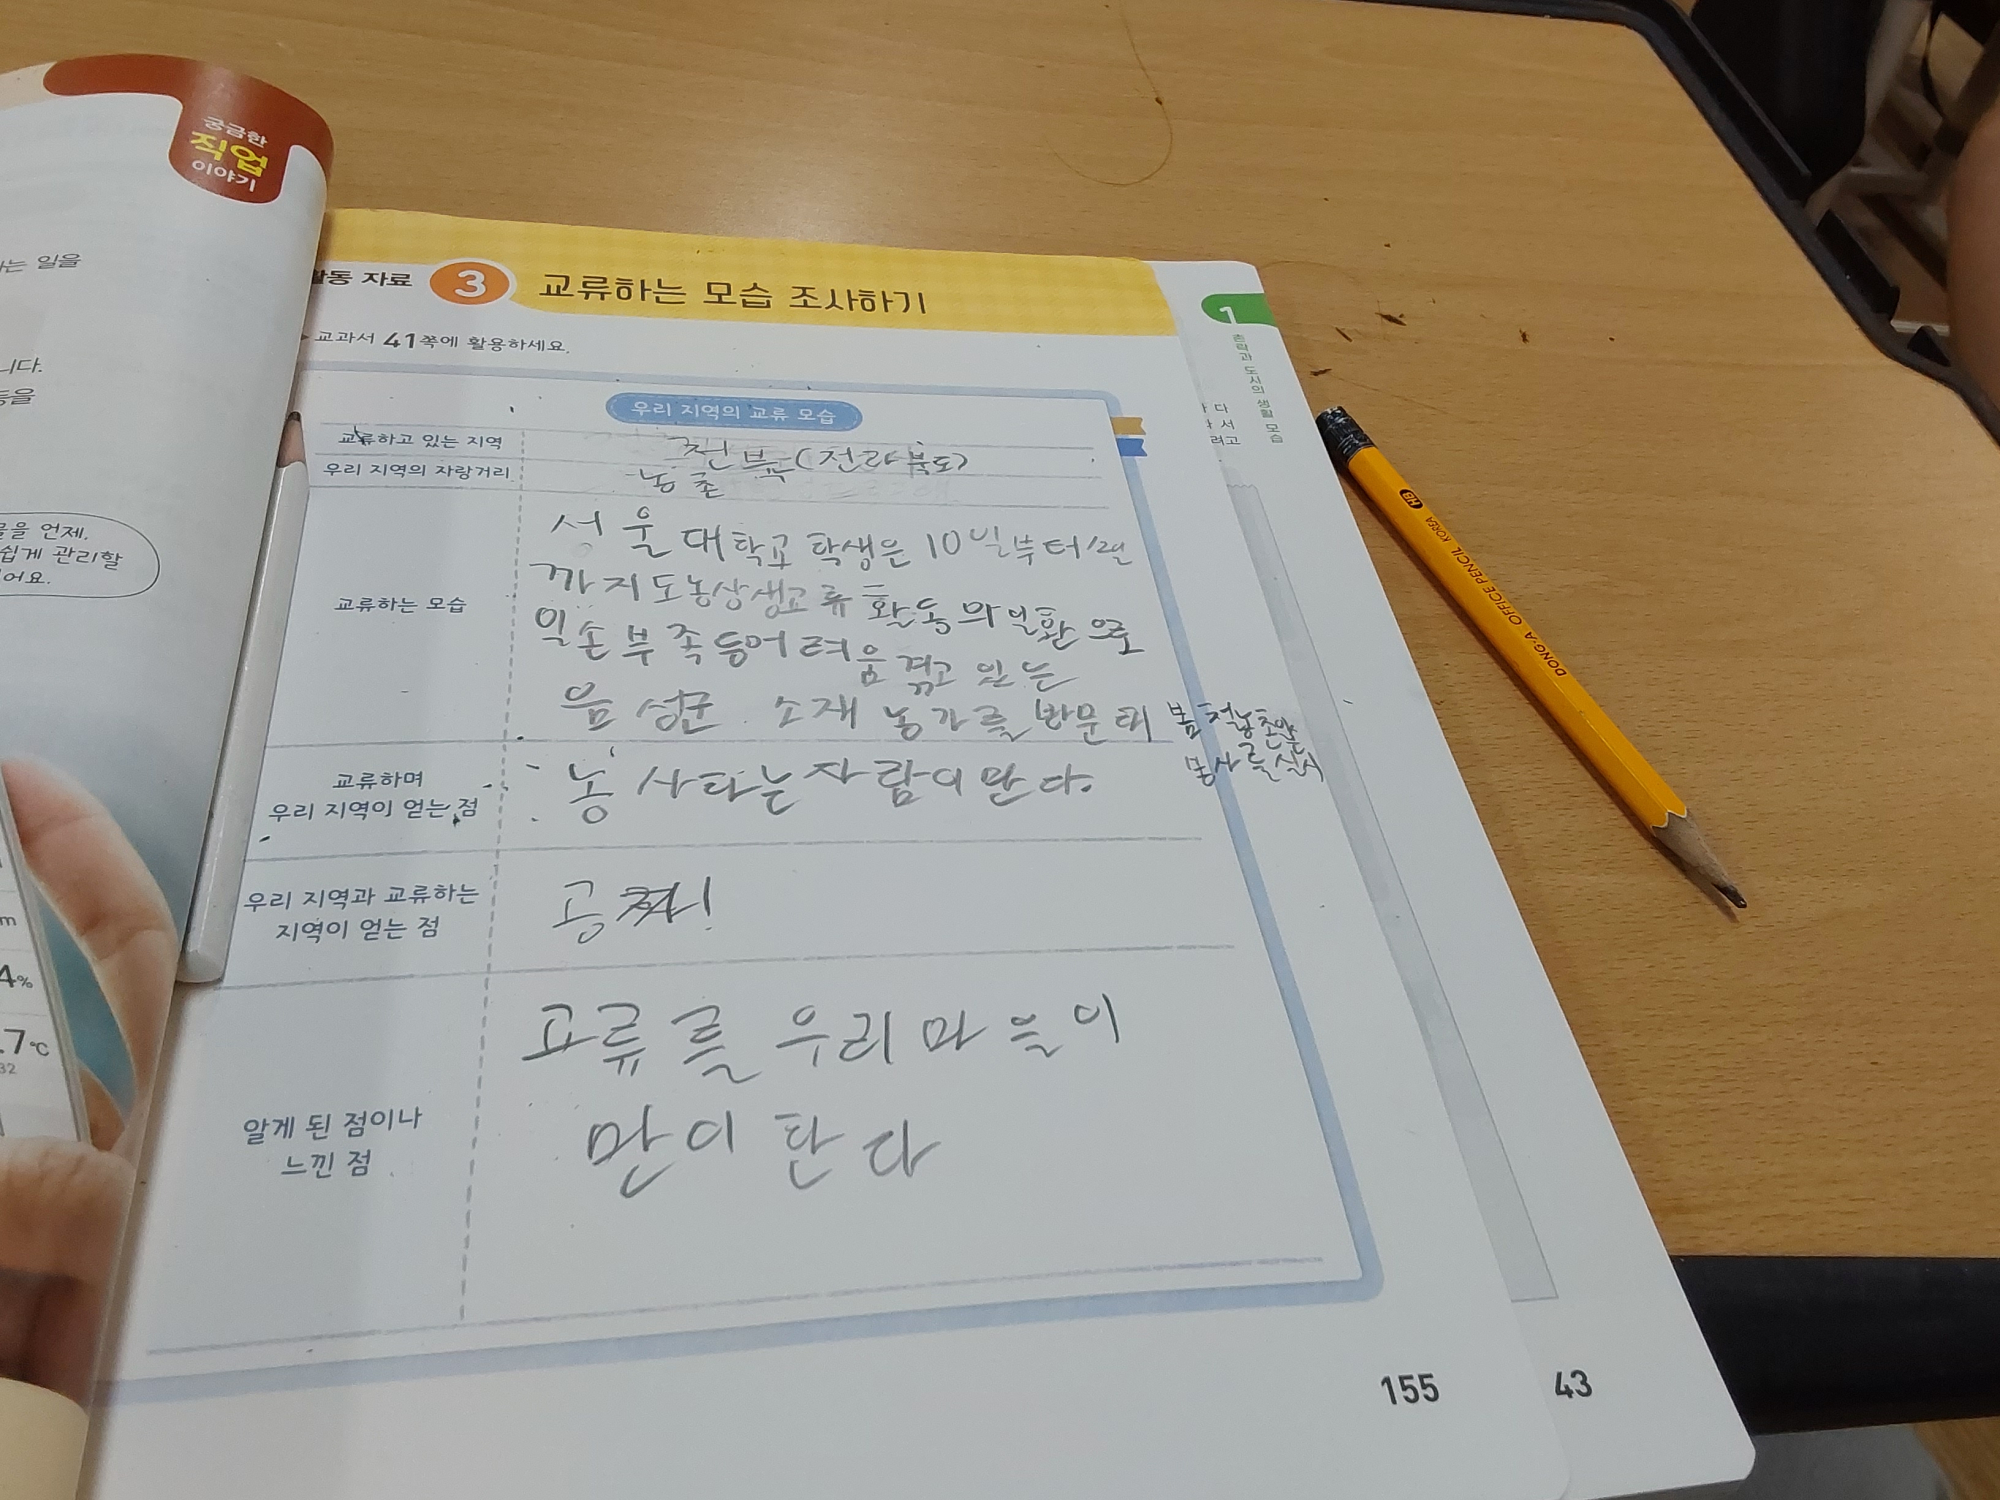 궁금한
직업
이야기
는 일을
니다.
등을
물을 언제,
쉽게 관리할
어요.
m
4%
.7℃
32
활동 자료 3 교류하는 모습 조사하기
교과서 41쪽에 활용하세요.
우리 지역의 교류 모습
교류하고 있는 지역
전북(전라북도)
우리 지역의 자랑거리
농촌
교류하는 모습
서울대학교 학생은 10일부터
까지 도농상생교류 활동의 일환으로
일손 부족 등 어려움 겪고 있는
음성군 소재 농가를 방문해 봄철 농촌
봉사를 실시
교류하며
우리 지역이 얻는 점
농사 는 자람이 만다.
우리 지역과 교류하는
지역이 얻는 점
공짜!
알게 된 점이나
느낀 점
교류를 우리 마을이
만이 한다
155
1
촌락과 도시의 생활 모습
다
서
려고
43
DONG-A OFFICE PENCIL KOREA HB